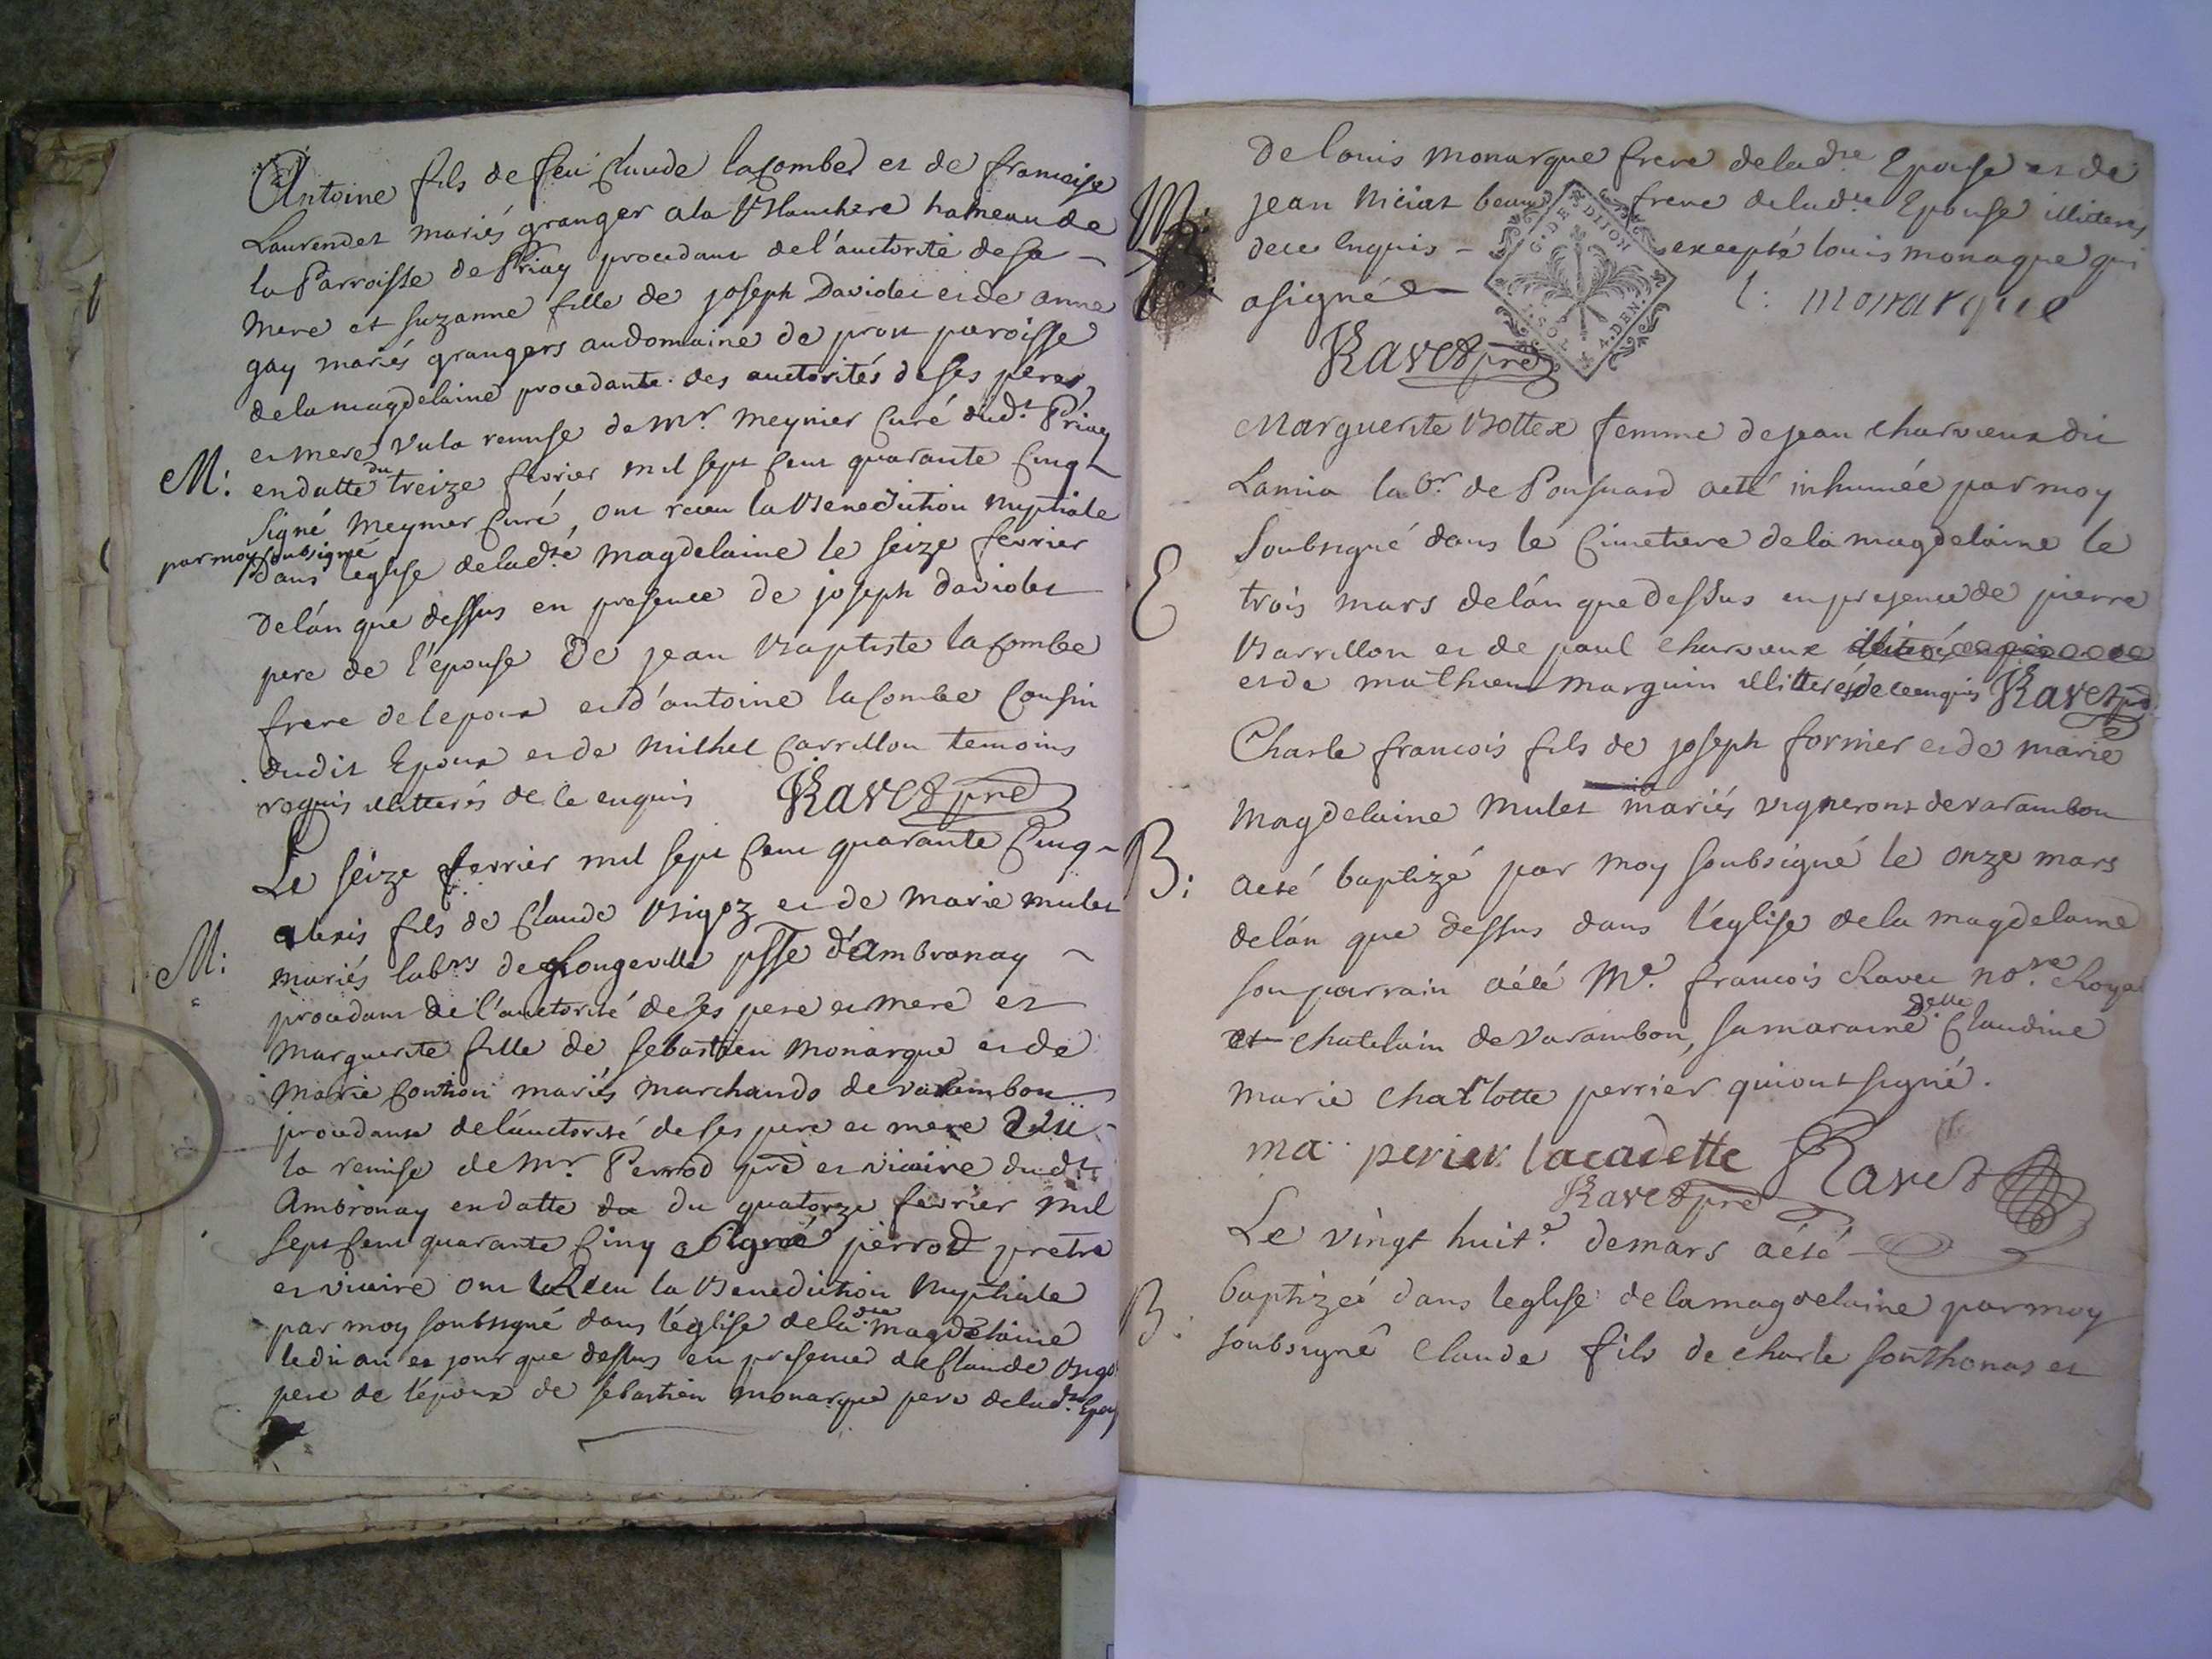 Antoine fils de feu Claude lacombe et de francoise
Laurendet mariés granger ala Blanchere hameau de
la Parroisse de Priay procedant de l'auctorité de sa
mere et suzanne fille de joseph Daviolet et de anne
gay mariés grangers au domaine de prost paroisse
de la magdelaine procedante des auctorités de ses pere
et mere vu la remise de Mr. Meynier Curé dud.t Priay
M: en datte du treize fevrier mil sept cent quarante cinq
Signé Meynier Curé, ont receu la Benediction Nuptiale
par moy soubsigné
dans leglise de lad.te magdelaine le seize fevrier
de lán que dessus en presence de joseph daviolet
pere de l'epouse De jean Baptiste lacombe
frere de lepoux et d'antoine lacombe Cousin
dudit Epoux et de michel Carrillon temoins
requis illitterés de ce enquis Ravet pre
Le seize fevrier mil sept cent quarante cinq
alexis fils de Claude Bigoz et de Marie mulet
M: mariés lab.rs de Longeville psse d'Ambronay
procedant de l'auctorité de ses pere et mere et
Marguerite fille de sebastien Monarque et de
Marie mariés marchands de varambon
procedante de láuctorité de ses pere et mere Vü
la remise de Mr Perrod pre et vicaire dud.t
Ambronay en datte du du quatorze fevrier mil
sept cent quarante cinq signé perrod pretre
et vicaire ont receu la Benediction Nuptiale
par moy soubsigné dans l'église de la d.te magdelaine
ledit an et jour que dessus en presence de Claude Bigo
pere de l'epoux de sebastien monarque pere de lad.te Epou
De louis monarque frere de lad.te Epouse et de
M: jean Niciat beau frere de lad.te Epouse illiteres
de ce enquis - excepté louis monaque qui
a signé L: monarque
G. DE DIJON
SOL 4. DEN.
Ravet pre
Marguerite Bottex femme de jean charvieux dit
Lamia la.br. de Ponsuard aeté inhumée par moy
Soubsigné dans le Cimetiere de la magdelaine le
E trois mars de lán que dessus en presence de pierre
Barrillon et de paul charvieux
et de mathieu marguin illitterés de ce enquis Ravet pre
Charle francois fils de joseph fornier et de marie
Magdelaine Mulet mariés vignerons de varambon
B: aeté baptizé par moy soubsigné le onze mars
de lán que dessus dans l'église de la magdelaine
son parrain aété Me. francois Ravet no.re Royal
et chatelain de Varambon, sa maraine d.elle Claudine
marie charlotte perrier qui ont signé.
ma.. perier lacadette Ravet
Ravet pre
Le vingt huit.e de mars aété
B: baptizé dans leglise de la magdelaine par moy
soubsigné Claude fils de charle sonthonas et